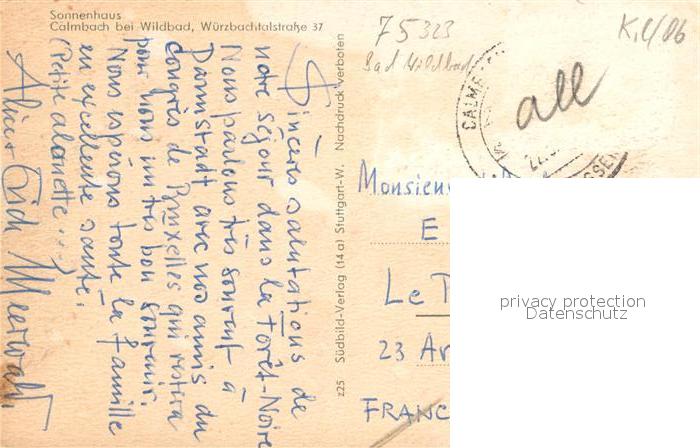 Sonnenhaus
Calmbach bei Wildbad, Würzbachtalstraße 37
Sincères salutations de
notre séjour dans la Forêt-Noire
Nous parlons très souvent à
Darmstadt avec nos amis du
Congrès de Bruxelles qui restera
pour nous un très bon souvenir.
Nous espérons toute la famille
en excellente santé.
(Petite alouette...)
Alice + Erich Meerwald
z25 Südbild-Verlag (14a) Stuttgart-W. Nachdruck verboten
75323
Bad Wildbad
K.2/06
all
CALMB
Monsieur
E
Le
23 Ar
FRANC
privacy protection
Datenschutz